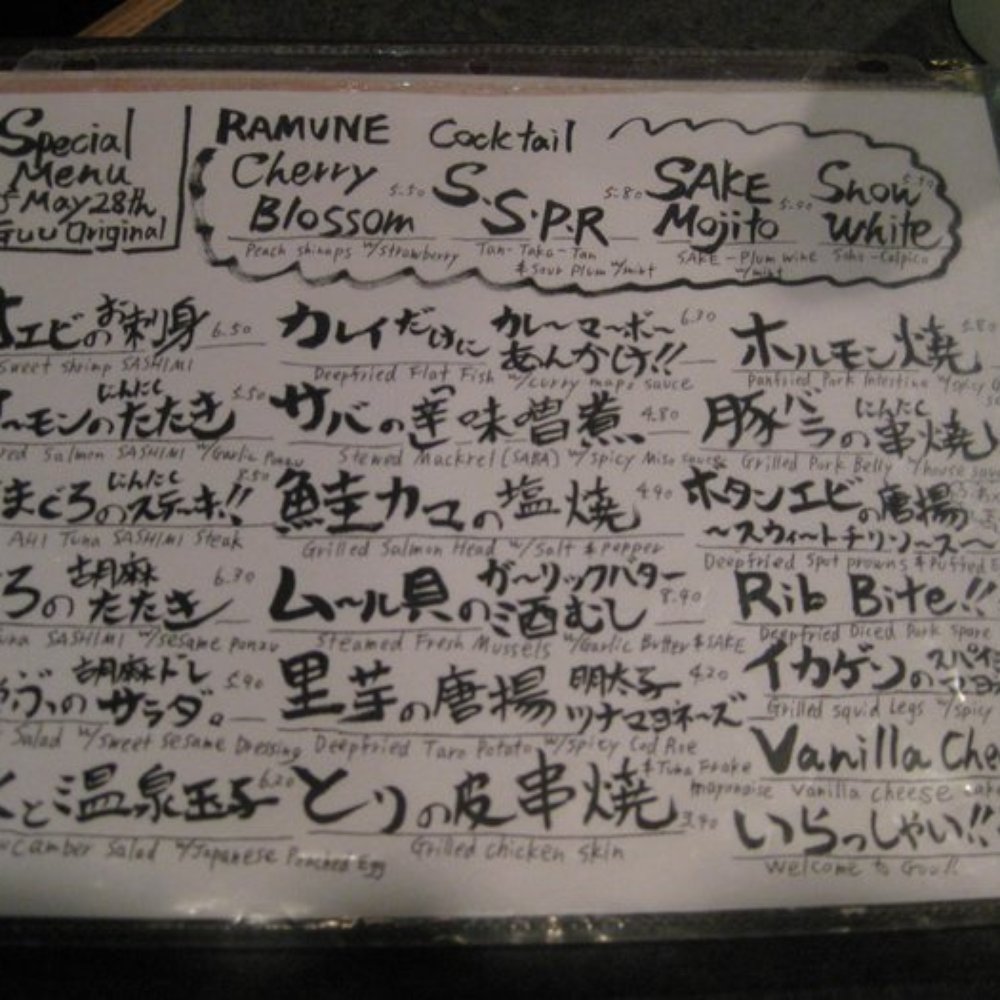 Special
Menu
May 28th
Guu Original
RAMUNE Cocktail
Cherry
Blossom 5.50
Peach shinaps w/strawberry
S.S.P.R 5.80
Tan-Taka-Tan
& Sour Plum w/mint
SAKE
Mojito 5.90
SAKE-Plum wine
w/mint
Snow
White
Soho-Calpico
エビのお刺身 6.50
Sweet shrimp SASHIMI
ーモンのにんにくたたき 5.50
Salmon SASHIMI w/Garlic Ponzu
まぐろのにんにくステーキ!! 8.50
AHI Tuna SASHIMI Steak
ろの胡麻たたき 6.30
una SASHIMI w/sesame ponzu
ぶのサラダ。胡麻ドレ 5.90
Salad w/sweet sesame Dressing
と温泉玉子 6.20
camber Salad w/Japanese Poached Egg
カレイだけにカレーマーボーあんかけ!! 6.30
Deepfried Flat Fish w/curry mapo sauce
サバの「辛」味噌煮 4.80
Stewed Mackrel (SABA) w/spicy Miso sauce
鮭カマの塩焼 4.90
Grilled Salmon Head w/Salt & pepper
ムール貝のガーリックバター酒むし 8.90
Steamed Fresh Mussels w/Garlic Butter & SAKE
里芋の唐揚 明太子ツナマヨネーズ 4.20
Deepfried Taro Potato w/spicy Cod Roe
& Tuna Flake
mayonaise
とりの皮串焼 3.90
Grilled chicken skin
ホルモン焼
Panfried Pork Intestine w/spicy
豚バラのにんにく串焼
Grilled Pork Belly w/house
ホタンエビの唐揚
～スウィートチリソース～
Deepfried Spot prawns & Puffed
Rib Bite!!
Deepfried Diced Pork Spare
イカゲソのスパイ
Grilled squid Legs w/spicy
Vanilla Che
Vanilla cheese
いらっしゃい!!
Welcome to Guu!!